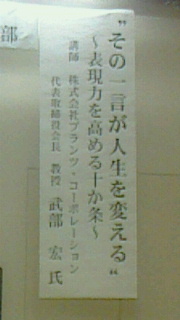 "その一言が人生を変える"
～表現力を高める十か条～
講師 株式会社プランツ・コーポレーション
代表取締役会長 教授 武部 宏 氏
部